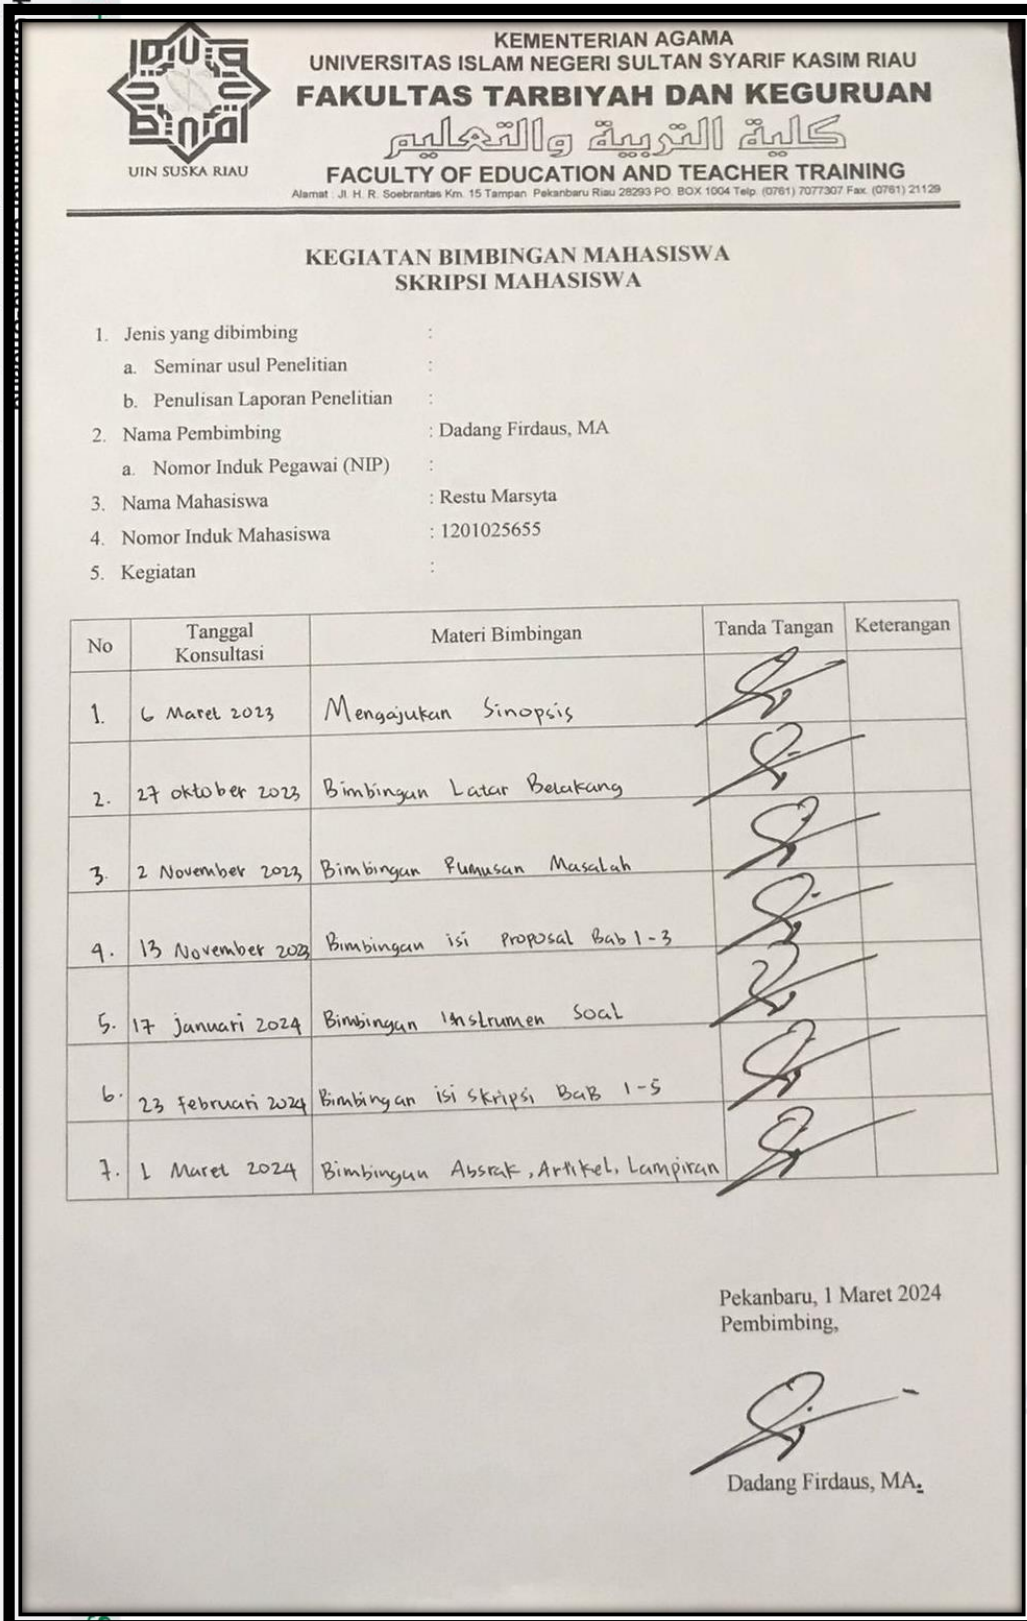 KEMENTERIAN AGAMA
UNIVERSITAS ISLAM NEGERI SULTAN SYARIF KASIM RIAU
FAKULTAS TARBIYAH DAN KEGURUAN
كلية التربية والتعليم
UIN SUSKA RIAU
FACULTY OF EDUCATION AND TEACHER TRAINING
Alamat : Jl. H. R. Soebrantas Km. 15 Tampan Pekanbaru Riau 28293 PO. BOX 1004 Telp. (0761) 7077307 Fax. (0761) 21129
KEGIATAN BIMBINGAN MAHASISWA
SKRIPSI MAHASISWA
1. Jenis yang dibimbing :
a. Seminar usul Penelitian :
b. Penulisan Laporan Penelitian :
2. Nama Pembimbing : Dadang Firdaus, MA
a. Nomor Induk Pegawai (NIP) :
3. Nama Mahasiswa : Restu Marsyta
4. Nomor Induk Mahasiswa : 1201025655
5. Kegiatan :
No Tanggal Konsultasi Materi Bimbingan Tanda Tangan Keterangan
1. 6 Maret 2023 Mengajukan Sinopsis
2. 27 oktober 2023 Bimbingan Latar Belakang
3. 2 November 2023 Bimbingan Rumusan Masalah
4. 13 November 2023 Bimbingan isi Proposal Bab 1-3
5. 17 januari 2024 Bimbingan Instrumen Soal
6. 23 februari 2024 Bimbingan isi skripsi BaB 1-5
7. 1 Maret 2024 Bimbingan Absrak, Artikel, Lampiran
Pekanbaru, 1 Maret 2024
Pembimbing,
Dadang Firdaus, MA.